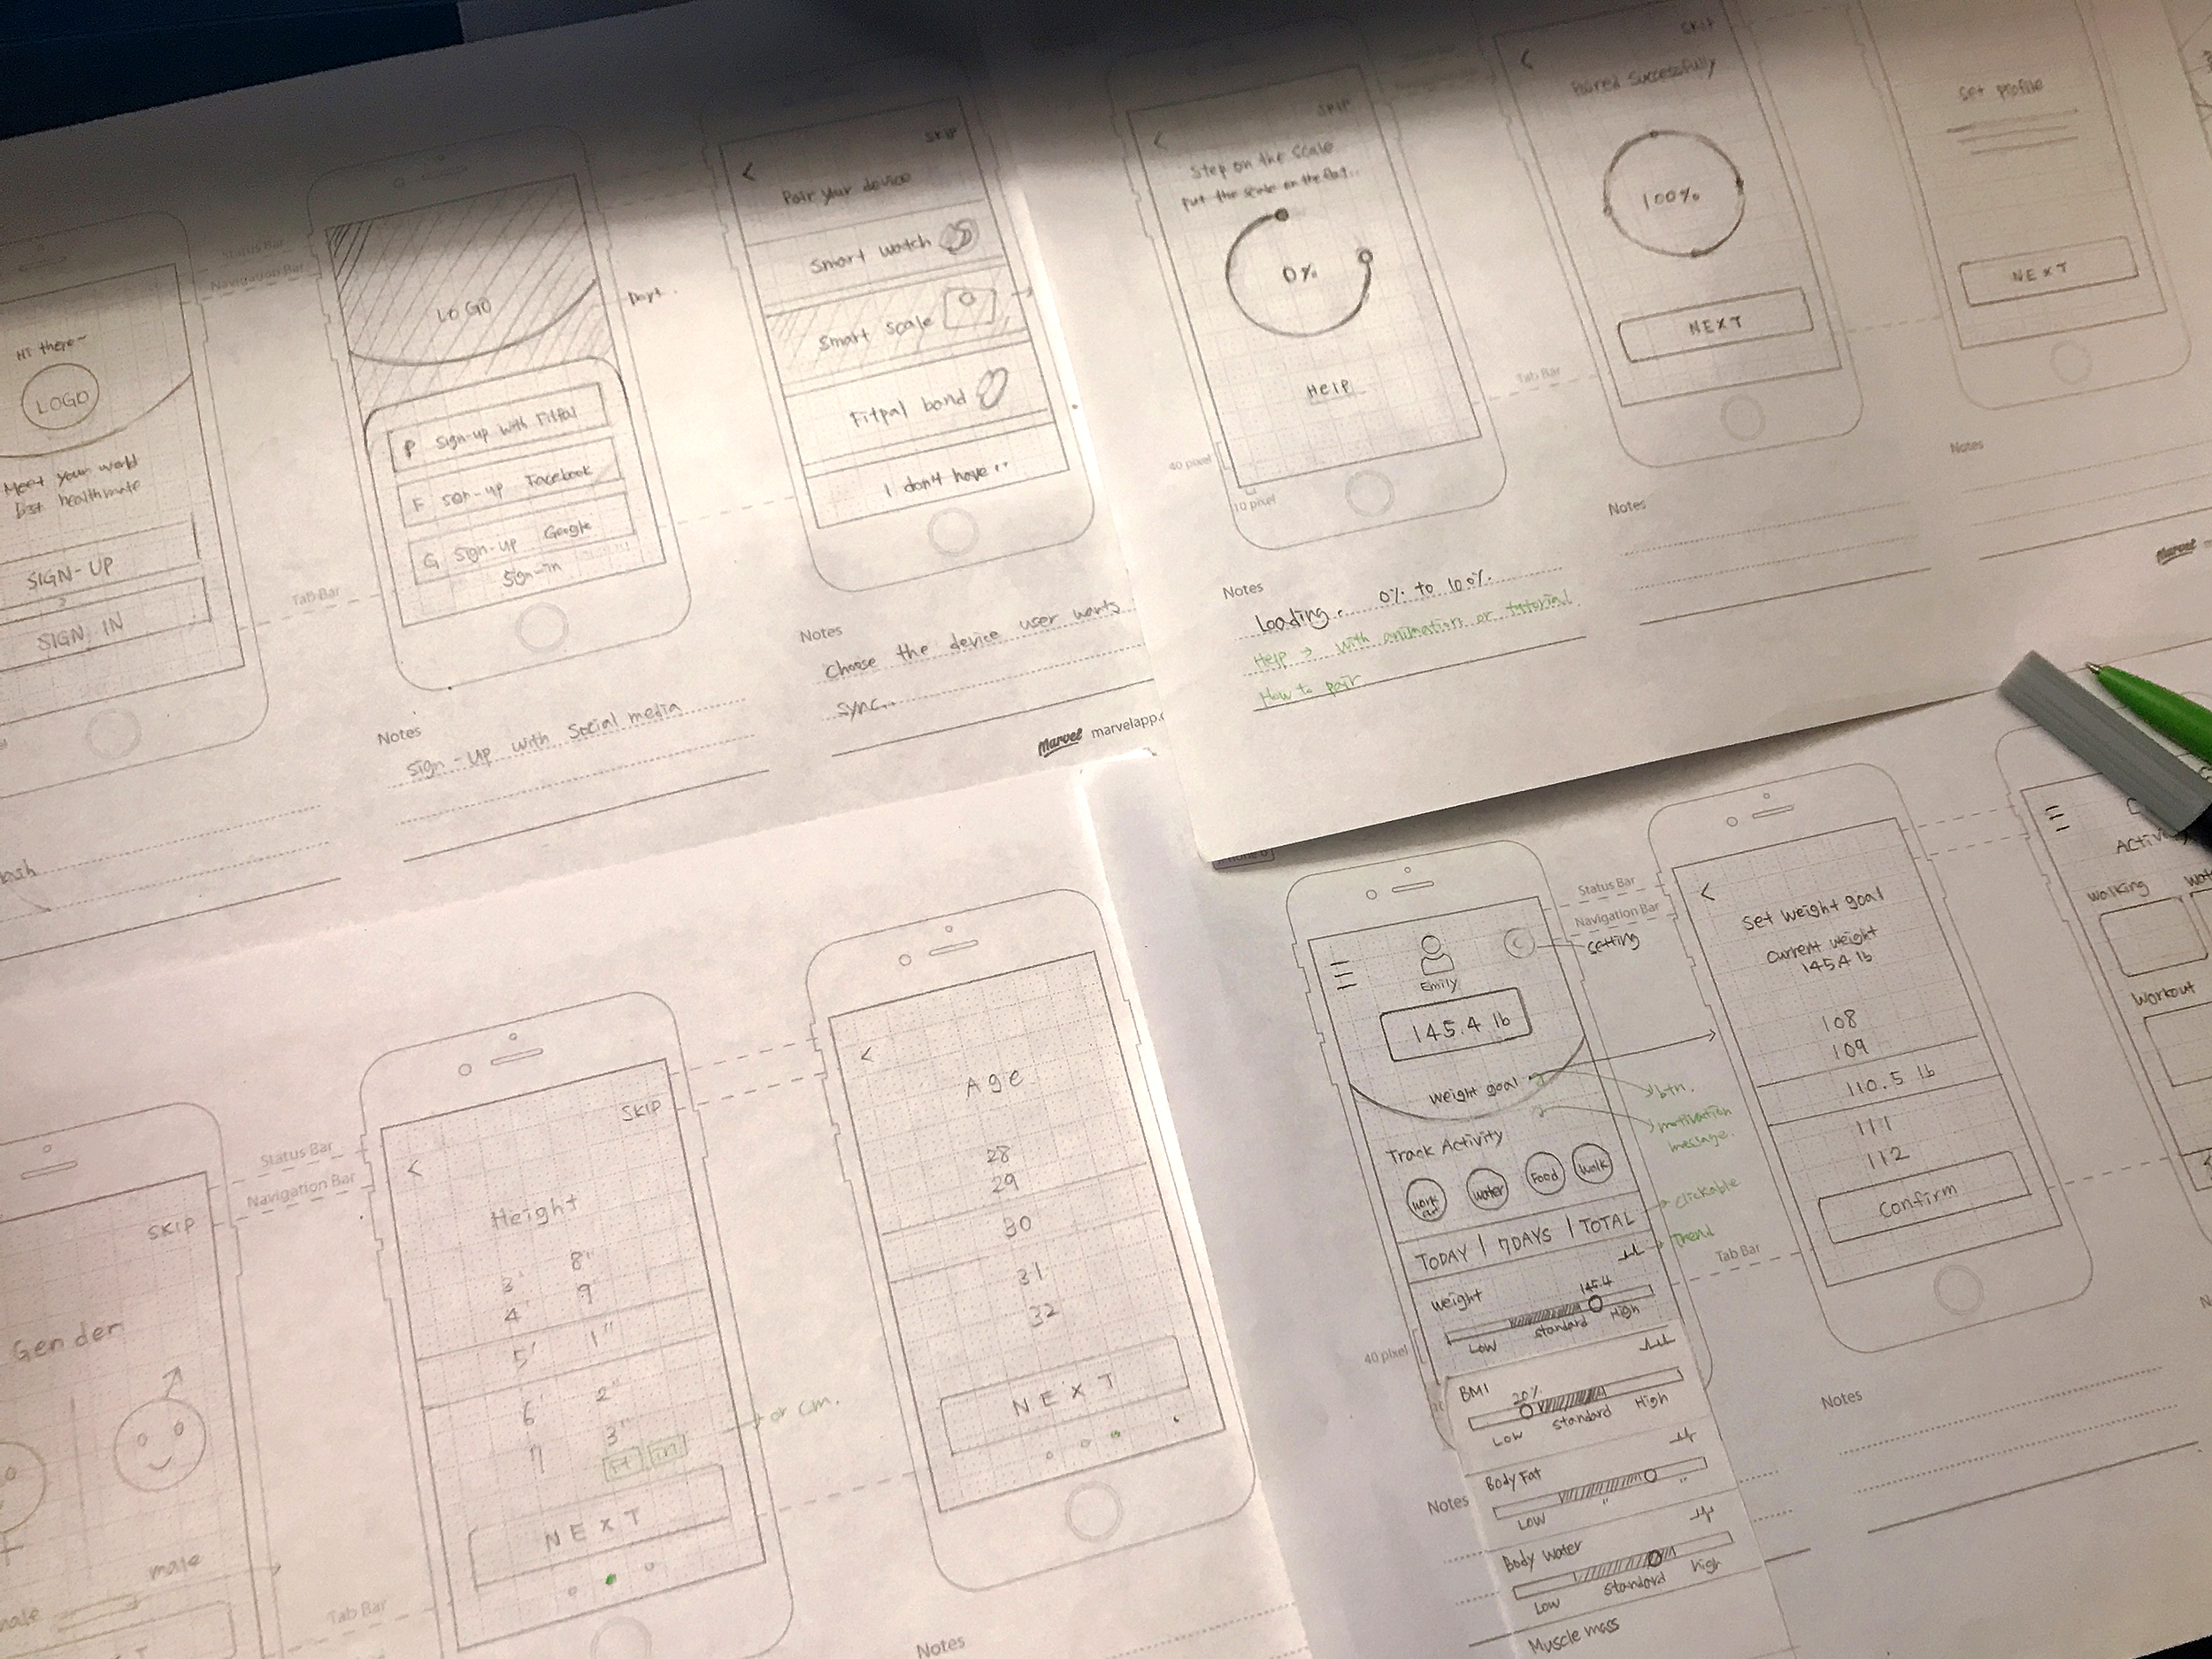 Hi there~
LOGO
Meet your world
best healthmate
SIGN-UP
SIGN IN
Status Bar
Navigation Bar
Tab Bar
LOGO
P Sign-up with Fitpal
F Sign-up Facebook
G Sign-up Google
Sign-in
Notes
Sign-Up with Social media
SKIP
<
Pair your device
Smart watch
Smart Scale
Fitpal band
I don't have ..
Notes
Choose the device user wants
sync..
Marvel marvelapp.c
SKIP
<
Step on the Scale
put the scale on the flat...
0%
Help
40 pixel
10 pixel
Notes
Loading. 0% to 100%.
Help → with animation or tutorial.
How to pair
Tab Bar
SKIP
<
Paired Successfully
100%
NEXT
Notes
Set Profile
NEXT
Notes
Marvel
SKIP
Gender
male
Status Bar
Navigation Bar
Tab Bar
SKIP
<
Height
3' 8"
4' 9
5' 1"
6' 2"
7 3"
Ft in
→ or cm.
NEXT
<
Age
28
29
30
31
32
NEXT
Notes
Status Bar
Navigation Bar
setting
Emily
145.4 lb
Weight goal
btn.
motivation
message.
Track Activity
Work out
Water
Food
Walk
TODAY | 7DAYS | TOTAL
Clickable
Trend
Tab Bar
Weight
145.4
Low standard High
40 pixel
BMI
20%
Low standard High
Body Fat
Low " "
Notes
Body Water
Low standard high
Muscle mass
<
Set weight goal
Current weight
145.4 lb
108
109
110.5 lb
111
112
Confirm
Notes
Walking
Workout